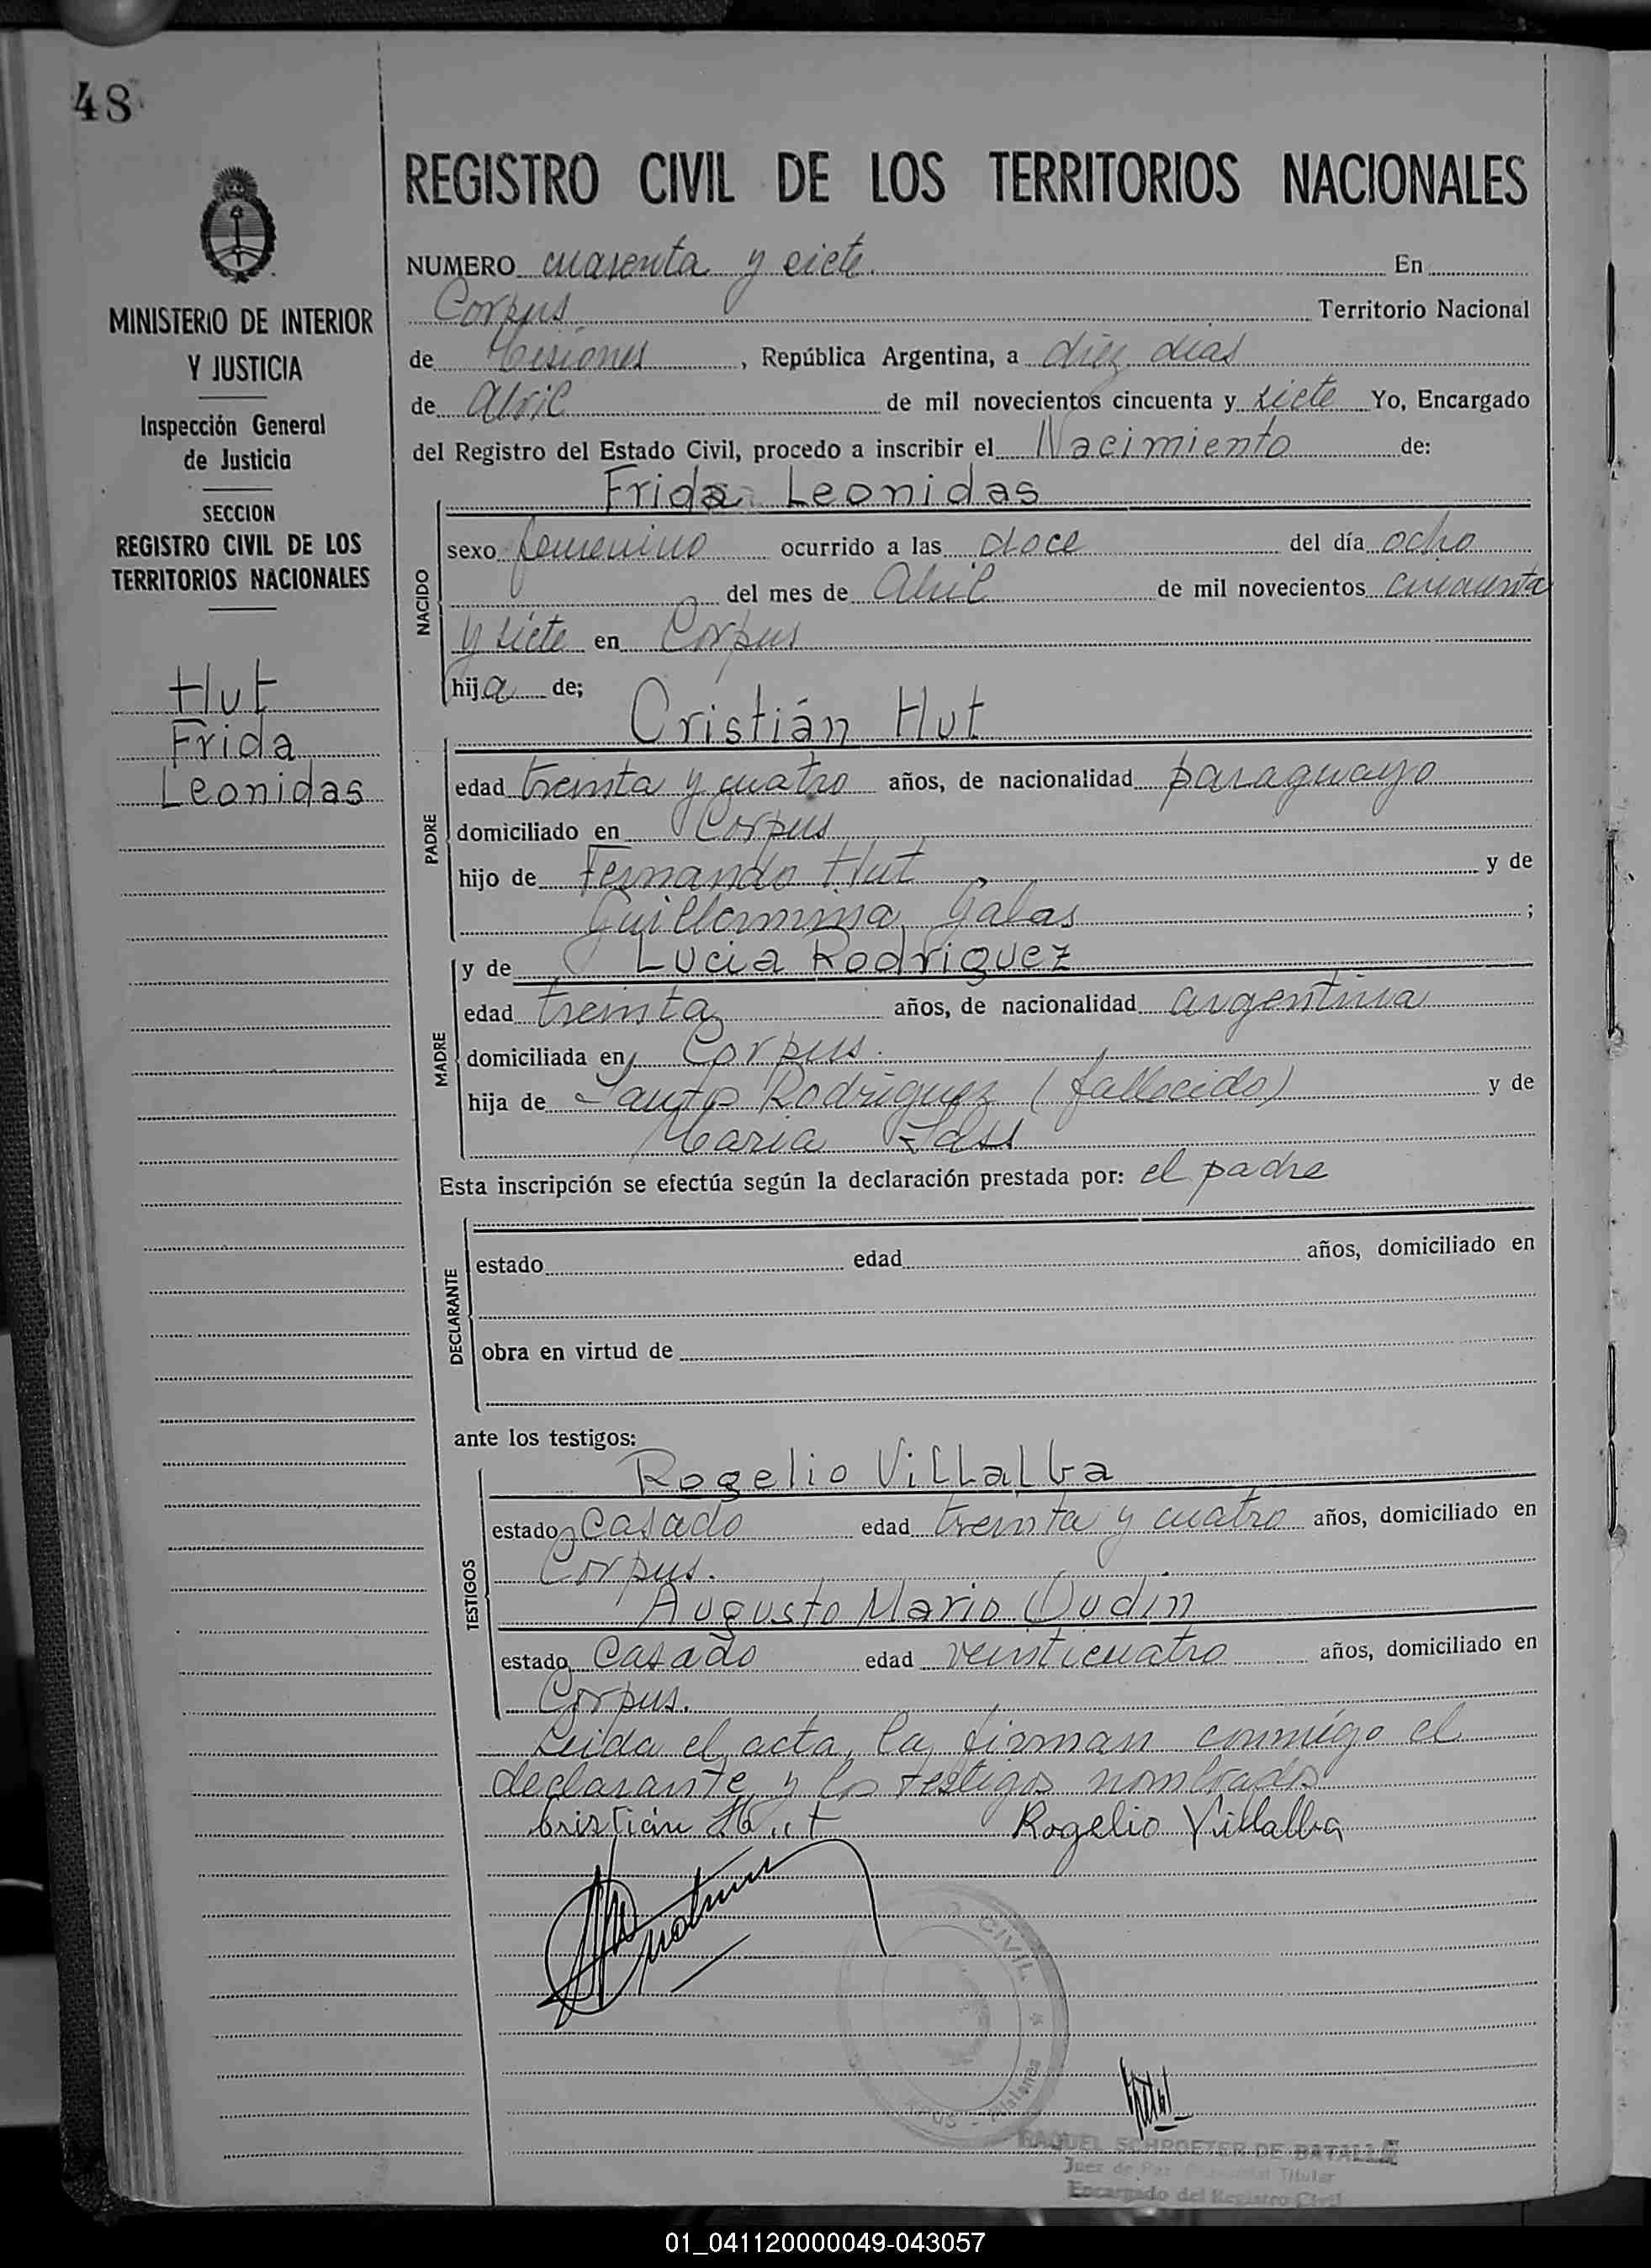 48
MINISTERIO DE INTERIOR
Y JUSTICIA
Inspección General
de Justicia
SECCION
REGISTRO CIVIL DE LOS
TERRITORIOS NACIONALES
Hut
Frida
Leonidas
REGISTRO CIVIL DE LOS TERRITORIOS NACIONALES
NUMERO cuarenta y siete. En
Corpus Territorio Nacional
de Misiones, República Argentina, a diez días
de Abril de mil novecientos cincuenta y siete Yo, Encargado
del Registro del Estado Civil, procedo a inscribir el Nacimiento de:
Frida Leonidas
NACIDO
sexo femenino ocurrido a las doce del día ocho
del mes de Abril de mil novecientos cincuenta
y siete en Corpus
hija de;
Cristián Hut
PADRE
edad treinta y cuatro años, de nacionalidad paraguayo
domiciliado en Corpus
hijo de Fernando Hut y de
Guillermina Galas ;
y de Lucia Rodriguez
MADRE
edad treinta años, de nacionalidad argentina
domiciliada en Corpus.
hija de Santos Rodriguez (fallecido) y de
Maria
Esta inscripción se efectúa según la declaración prestada por: el padre
DECLARANTE
estado edad años, domiciliado en
obra en virtud de
ante los testigos:
Rogelio Villalba
TESTIGOS
estado casado edad treinta y cuatro años, domiciliado en
Corpus.
Augusto Mario Oudin
estado casado edad veinticuatro años, domiciliado en
Corpus.
Leida el acta, la firman conmigo el
declarante y los testigos nombrados
Cristián Hut Rogelio Villalba
CIVIL
Misiones
RAQUEL SCHROETER DE BATALLA
Juez de Paz Titular
Encargado del Registro Civil
01_041120000049-043057